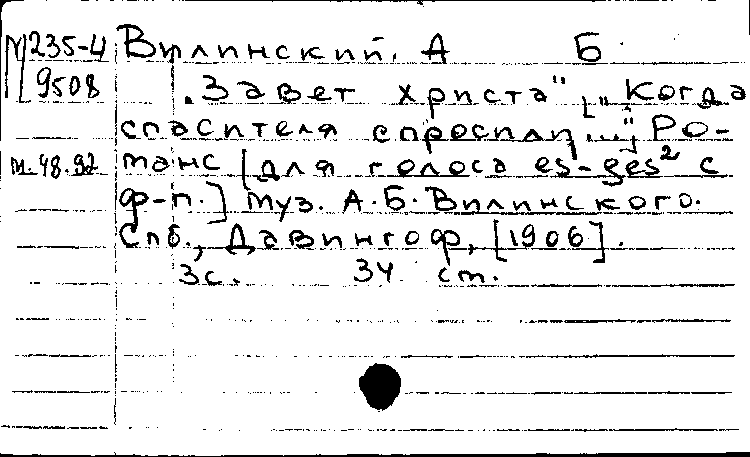 М235-4 Вилинский, А Б.
9508 „Завет христа" („Когда
спасителя спросили..."] Ро-
м.48.92 манс [для голоса es-ges² с
ф-п.] муз. А.Б. Вилинского.
Спб., Давингоф, [1906].
3с. 34 см.